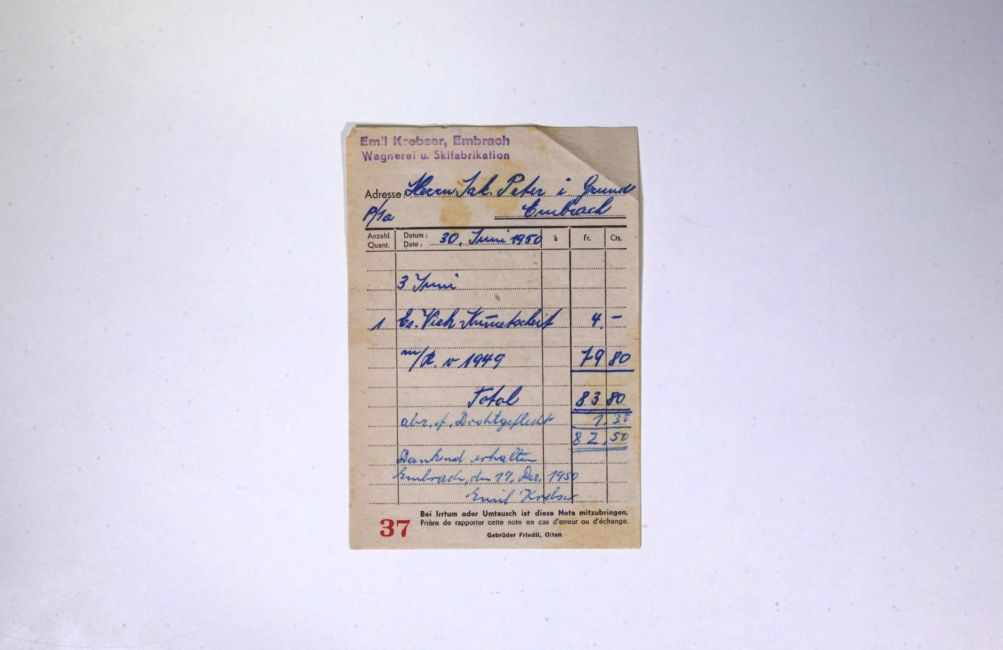 Emil Krebser, Embrach
Wagnerei u. Skifabrikation
Adresse Herrn Jak. Peter i. Grund
P/a Embrach
Anzahl Quant. Datum: Date: 30. Juni 1950 à Fr. Cts.
3 Juni
1 4.–
v 1949 79 80
Total 83 80
abz. f. Drahtgeflecht 1.30
82.50
Dankend erhalten
Embrach, den 19. Dez. 1950
Emil Krebser
37 Bei Irrtum oder Umtausch ist diese Nota mitzubringen.
Prière de rapporter cette note en cas d'erreur ou d'échange.
Gebrüder Friedli, Olten